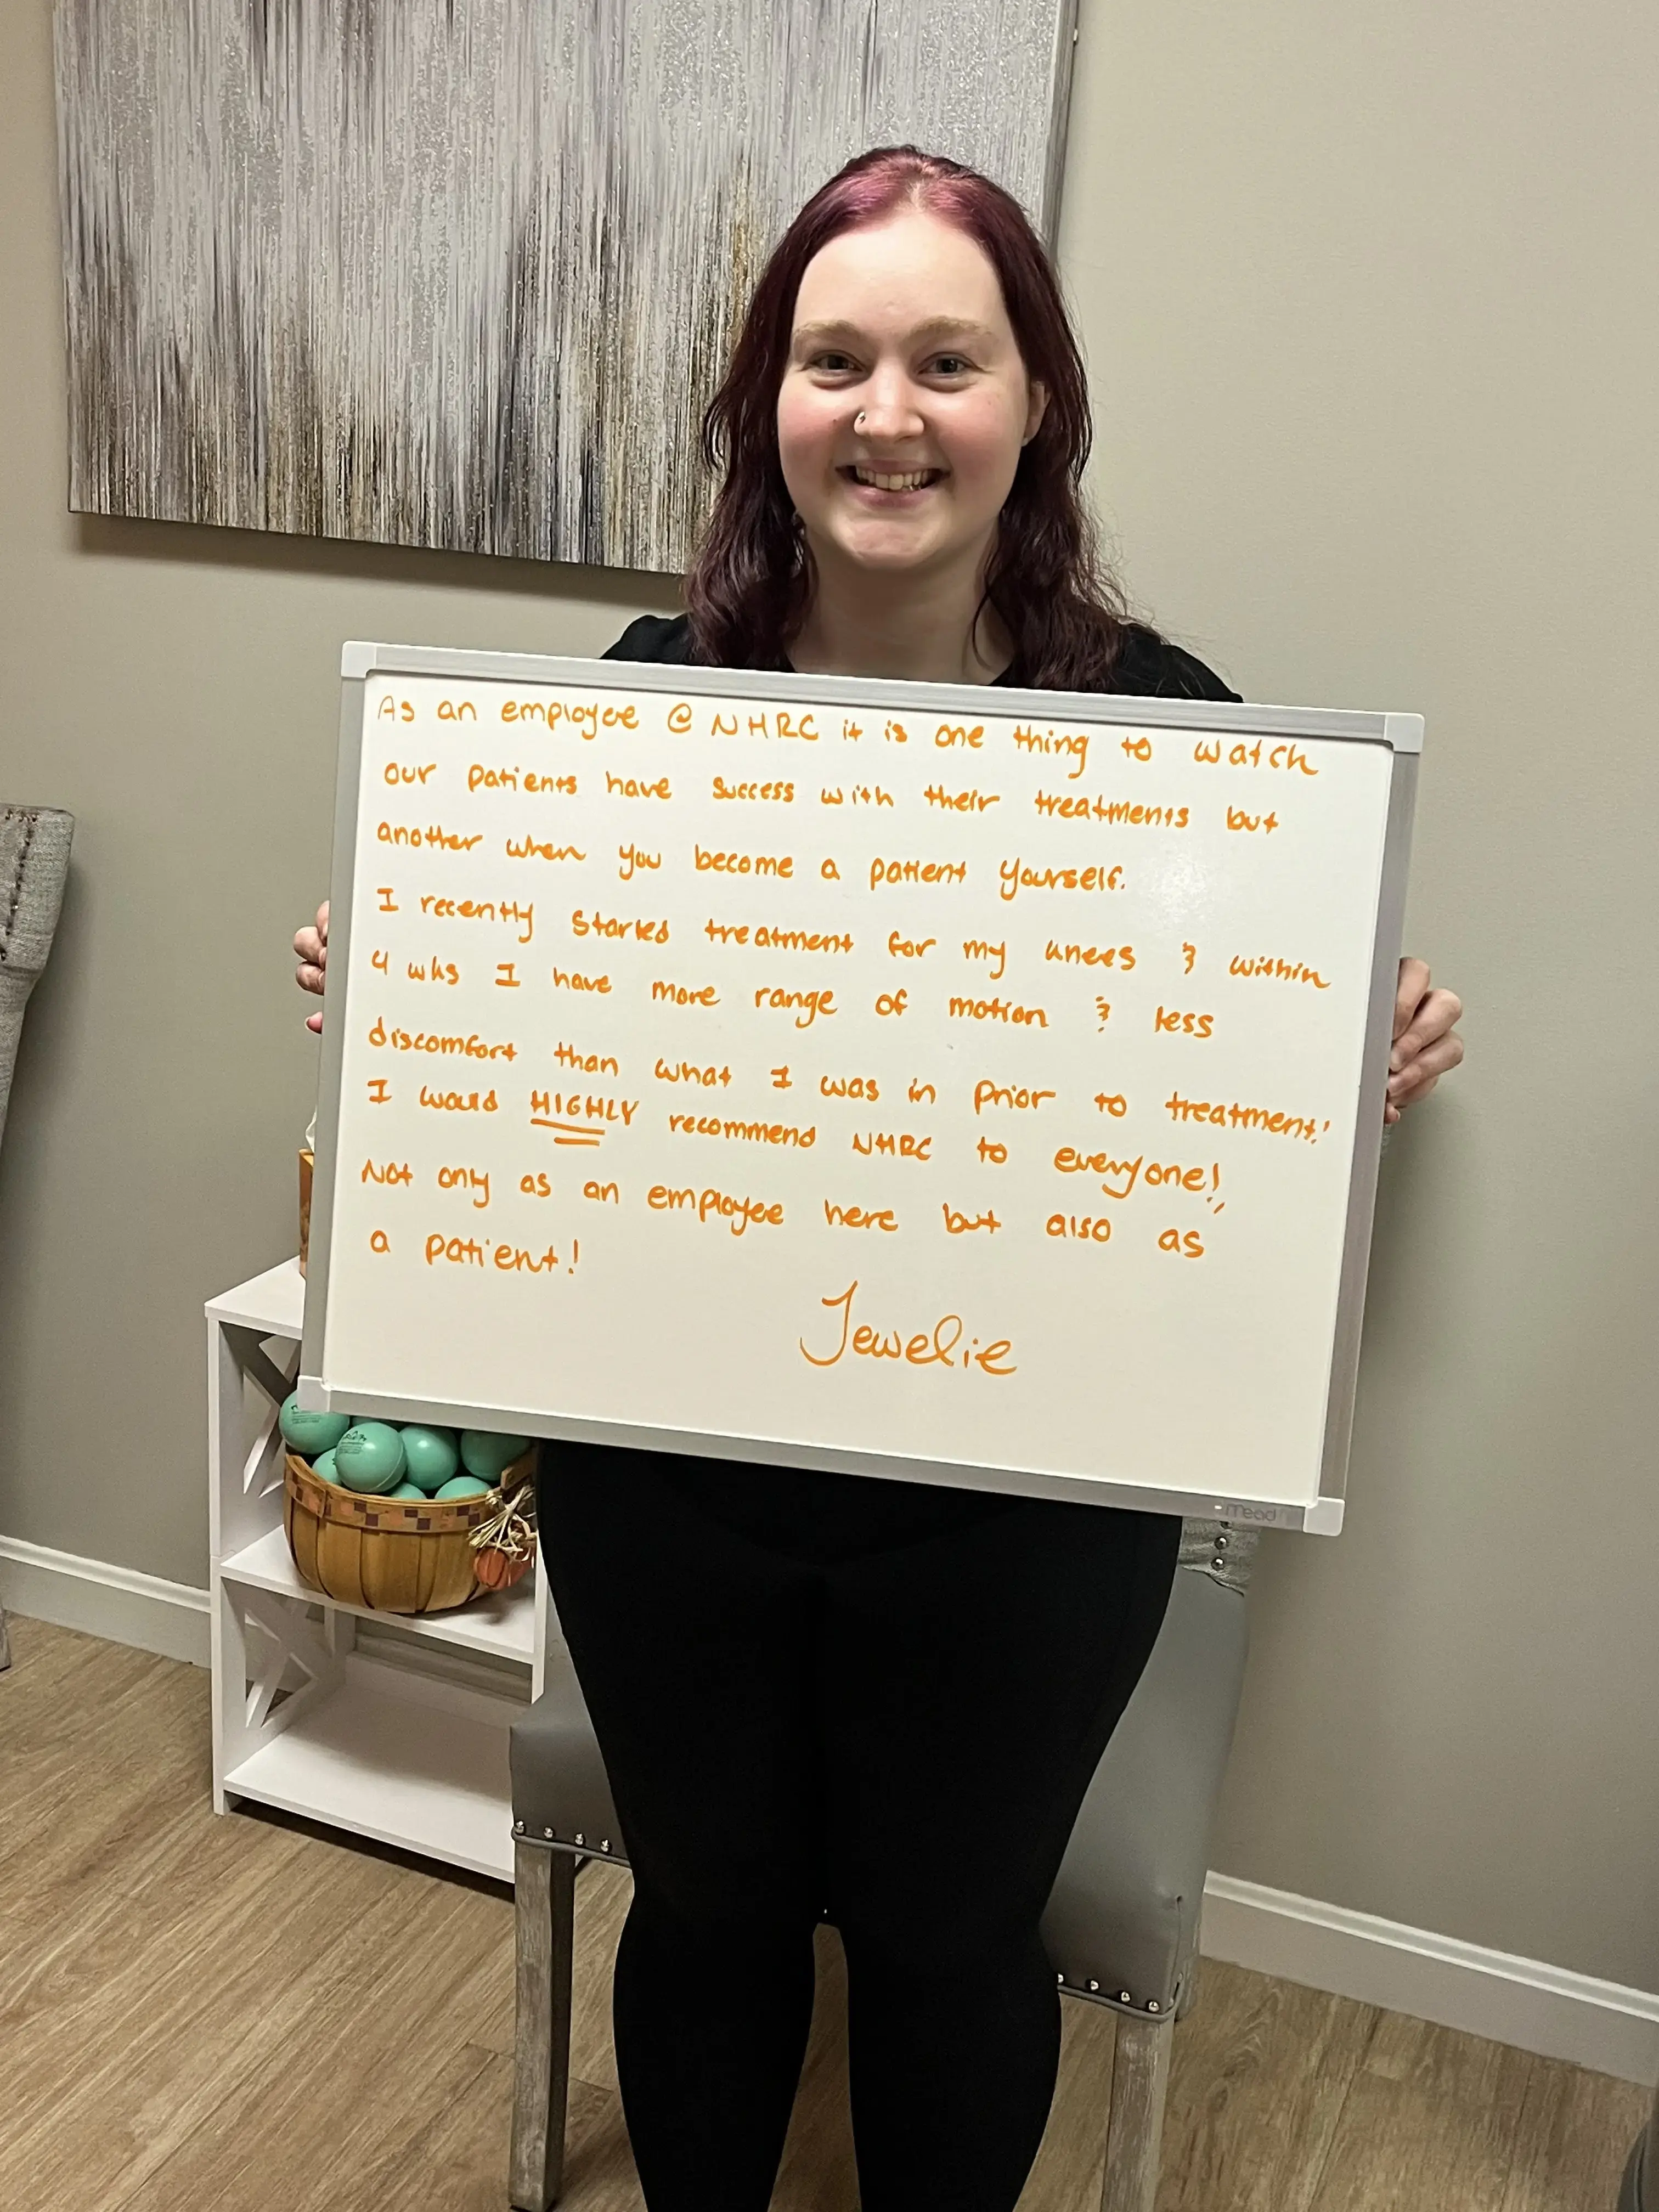 As an employee @ NHRC it is one thing to watch
our patients have success with their treatments but
another when you become a patient yourself.
I recently started treatment for my knees & within
4 wks I have more range of motion & less
discomfort than what I was in prior to treatment!
I would HIGHLY recommend NHRC to everyone!
Not only as an employee here but also as
a patient!
Jewelie
mead